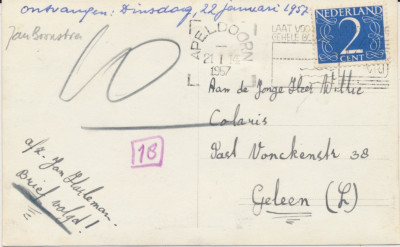 ontvangen: Dinsdag, 22 Januari 1957.
Jan Boonstra
10
APELDOORN
21 I
1957
LAAT VOO
GEHELE
NEDERLAND
2
CENT
Aan de Jonge Heer Willie
Colaris
Past Vonckenstr 38
Geleen (L)
18
a/z. Jan Harleman.
Brief volgd!